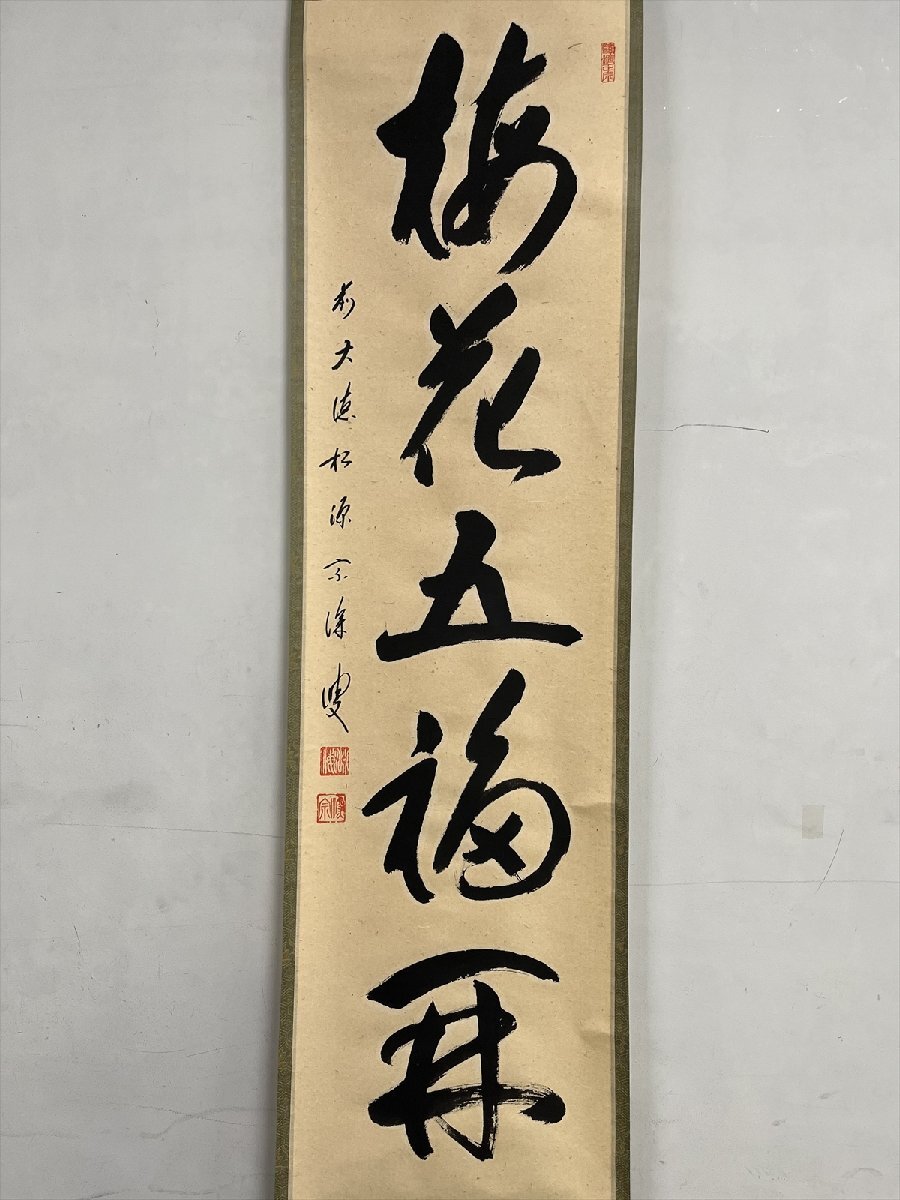 梅花五福開
前大徳松源宗深叟